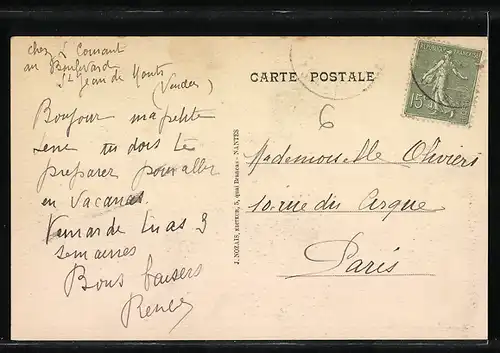 chez L Cousant
au Boulevard
St Jean de Monts
(Vendée)
Bonjour ma petite
tu dois te
preparer pour aller
en vacances.
tu as 3
semaines
Bons baisers
Renée
J. NOZAIS, EDITEUR, 5, quai NANTES
CARTE POSTALE
REPUBLIQUE FRANÇAISE
15
6
Mademoiselle Oliviers
10 rue du Cirque
Paris